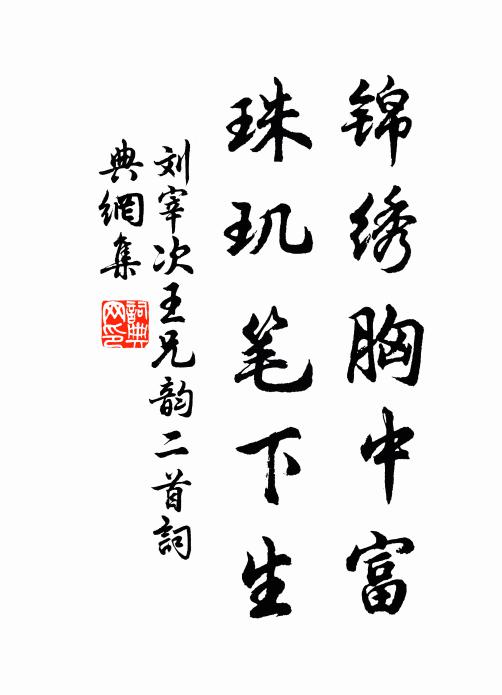 锦绣胸中富
珠玑笔下生
刘宰次王兄韵二首詞
典網集
詞典网印